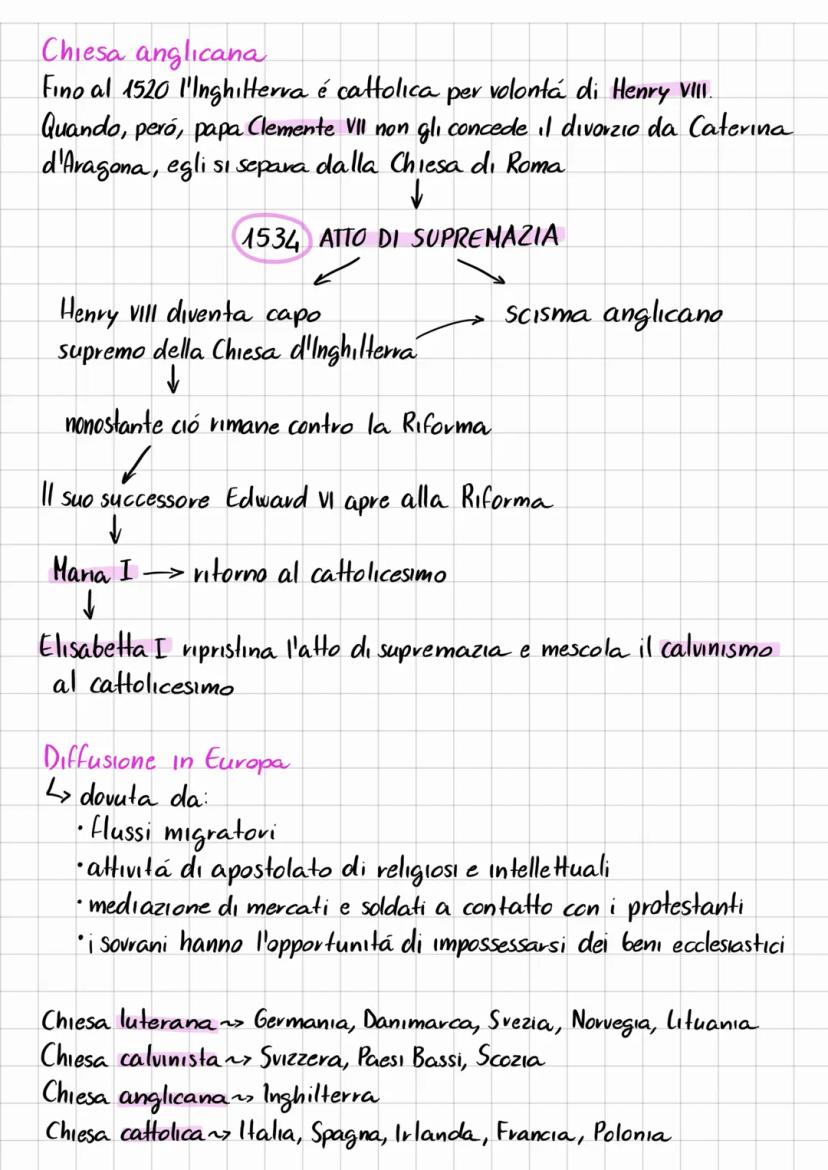 Chiesa anglicana
Fino al 1520 l'Inghilterra é cattolica per volontá di Henry VIII.
Quando, peró, papa Clemente VII non gli concede il divorzio da Caterina
d'Aragona, egli si separa dalla Chiesa di Roma
↓
1534 ATTO DI SUPREMAZIA
Henry VIII diventa capo
supremo della Chiesa d'Inghilterra
→ scisma anglicano
↓
nonostante ció rimane contro la Riforma
Il suo successore Edward VI apre alla Riforma
↓
Maria I → ritorno al cattolicesimo
↓
Elisabetta I ripristina l'atto di supremazia e mescola il calvinismo
al cattolicesimo
Diffusione in Europa
↳ dovuta da:
• flussi migratori
• attivitá di apostolato di religiosi e intellettuali
• mediazione di mercati e soldati a contatto con i protestanti
• i sovrani hanno l'opportunitá di impossessarsi dei beni ecclesiastici
Chiesa luterana ~> Germania, Danimarca, Svezia, Norvegia, Lituania
Chiesa calvinista ~> Svizzera, Paesi Bassi, Scozia
Chiesa anglicana ~> Inghilterra
Chiesa cattolica ~> Italia, Spagna, Irlanda, Francia, Polonia